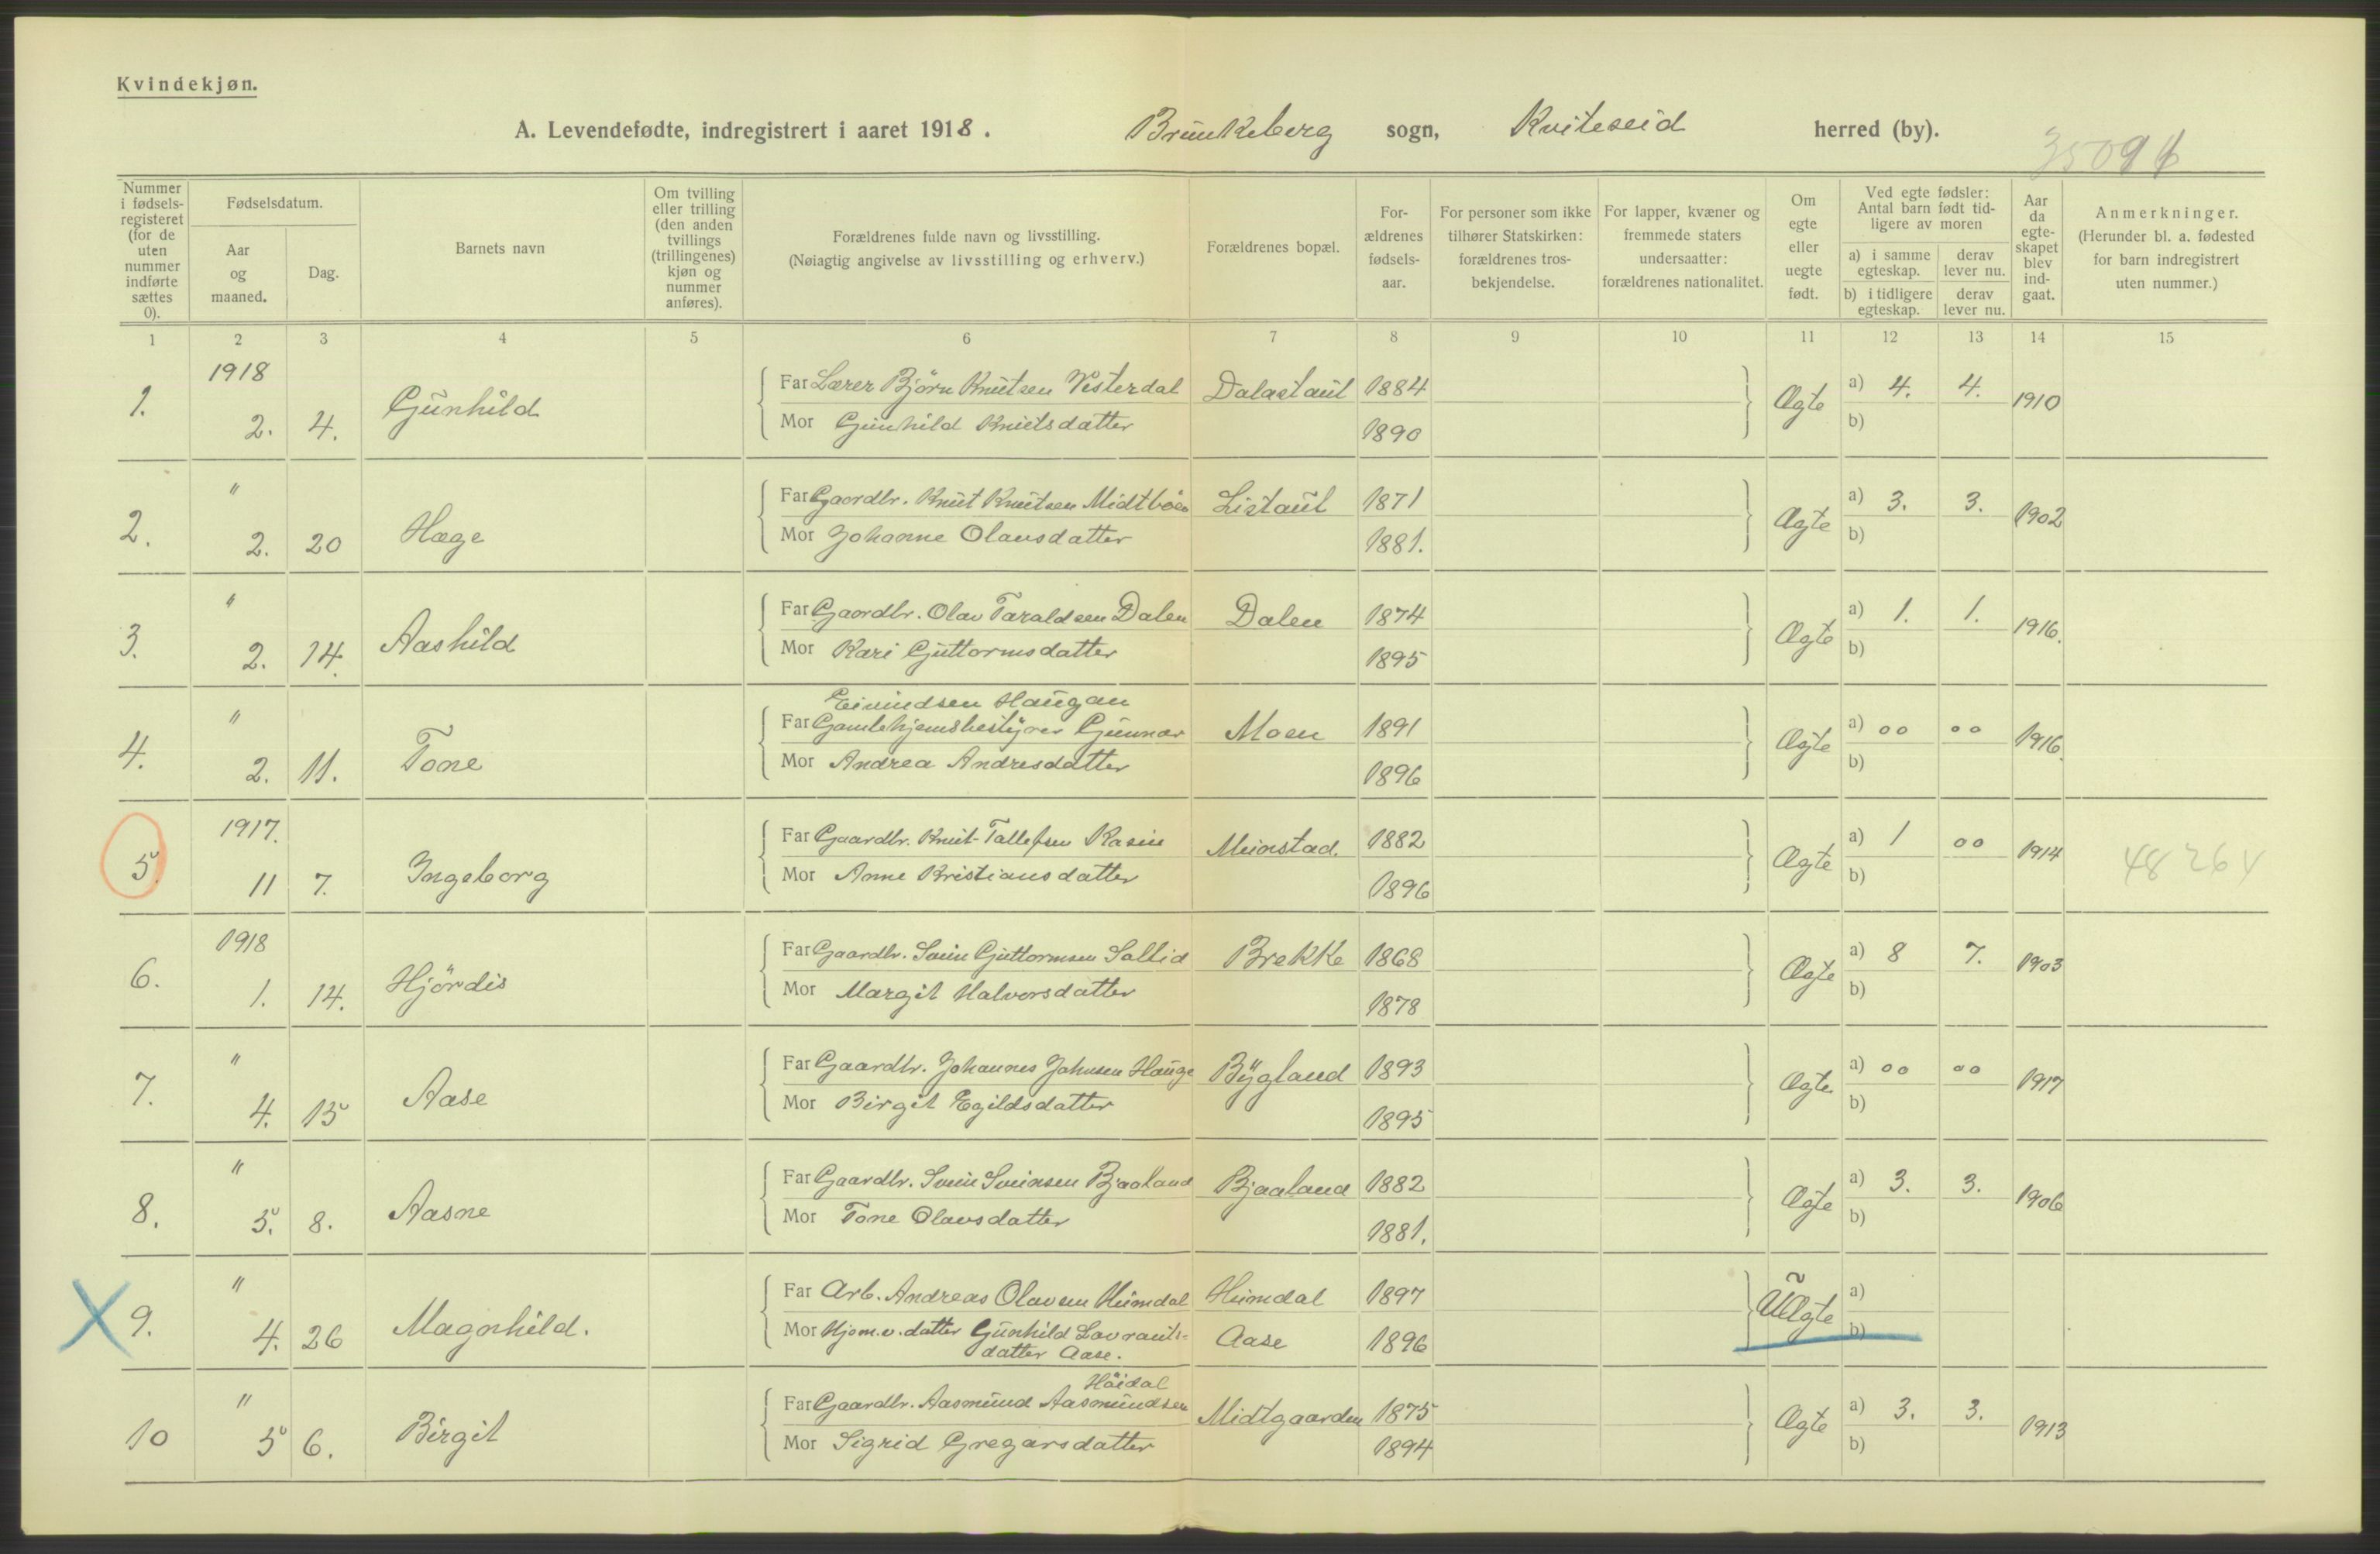 Kvindekjøn.
A. Levendefødte, indregistrert i aaret 1918. Brunkeberg sogn, Kviteseid herred (by).
Nummer i fødsels-registeret (for de uten nummer indførte sættes 0).
Fødselsdatum.
Aar og maaned.
Dag.
Barnets navn
Om tvilling eller trilling (den anden tvillings (trillingenes) kjøn og nummer anføres).
Forældrenes fulde navn og livsstilling.
(Nøiagtig angivelse av livsstilling og erhverv.)
Forældrenes bopæl.
For-ældrenes fødsels-aar.
For personer som ikke tilhører Statskirken: forældrenes tros-bekjendelse.
For lapper, kvæner og fremmede staters undersaatter: forældrenes nationalitet.
Om egte eller uegte født.
Ved egte fødsler: Antal barn født tid-ligere av moren
a) i samme egteskap.
derav lever nu.
b) i tidligere egteskap.
derav lever nu.
Aar da egte-skapet blev ind-gaat.
Anmerkninger.
(Herunder bl. a. fødested for barn indregistrert uten nummer.)
1 2 3 4 5 6 7 8 9 10 11 12 13 14 15
1918
1. 2. 4. Gunhild
Far Lærer Björn Knutsen Vesterdal Dalastaul 1884
Mor Gunhild Knutsdatter 1890
Ægte a) 4. 4. 1910
b)
"
2. 2. 20 Hæge
Far Gaardbr. Knut Knutsen Midtböen Listaul 1871
Mor Johanne Olausdatter 1881.
Ægte a) 3. 3. 1902
b)
"
3. 2. 14. Aashild
Far Gaardbr. Olav Taraldsen Dalen Dalen 1874
Mor Kari Guttormsdatter 1895
Ægte a) 1. 1. 1916.
b)
"
Eivindsen Haugan
4. 2. 11. Tone
Far Gamlehjemsbestyrer Gunnar Moen 1891
Mor Andrea Andresdatter 1896
Ægte a) oo oo 1916.
b)
1917.
5. 11 7. Ingeborg
Far Gaardbr. Knut Tallefsen Rasin 1882
Mor Anne Kristiansdatter 1896
Ægte a) 1 oo 1914
b)
1918
6. 1. 14. Hjördis
Far Gaardbr. Svein Guttormsen Sollid Brekke 1868
Mor Margit Halvorsdatter 1878
Ægte a) 8 7. 1903
b)
"
7. 4. 15 Aase
Far Gaardbr. Johannes Johnsen Hauge Bygland 1893
Mor Birgit Egildsdatter 1895
Ægte a) oo oo 1917
b)
"
8. 5. 8. Aasne
Far Gaardbr. Svein Sveinsen Bjaaland Bjaaland 1882
Mor Tone Olausdatter 1881.
Ægte a) 3. 3. 1906
b)
"
X 9. 4. 26 Magnhild.
Far Arb. Andreas Olavsen Heimdal Heimdal 1897
Mor Hjem.v. datter Gunhild Lavrants-
datter Aase. Aase 1896
UÆgte a)
b)
"
Höidal
10 5 6. Birgit
Far Gaardbr. Aasmund Aasmundsen Midtgaarden 1875
Mor Sigrid Gregarsdatter 1894
Ægte a) 3. 3. 1913
b)